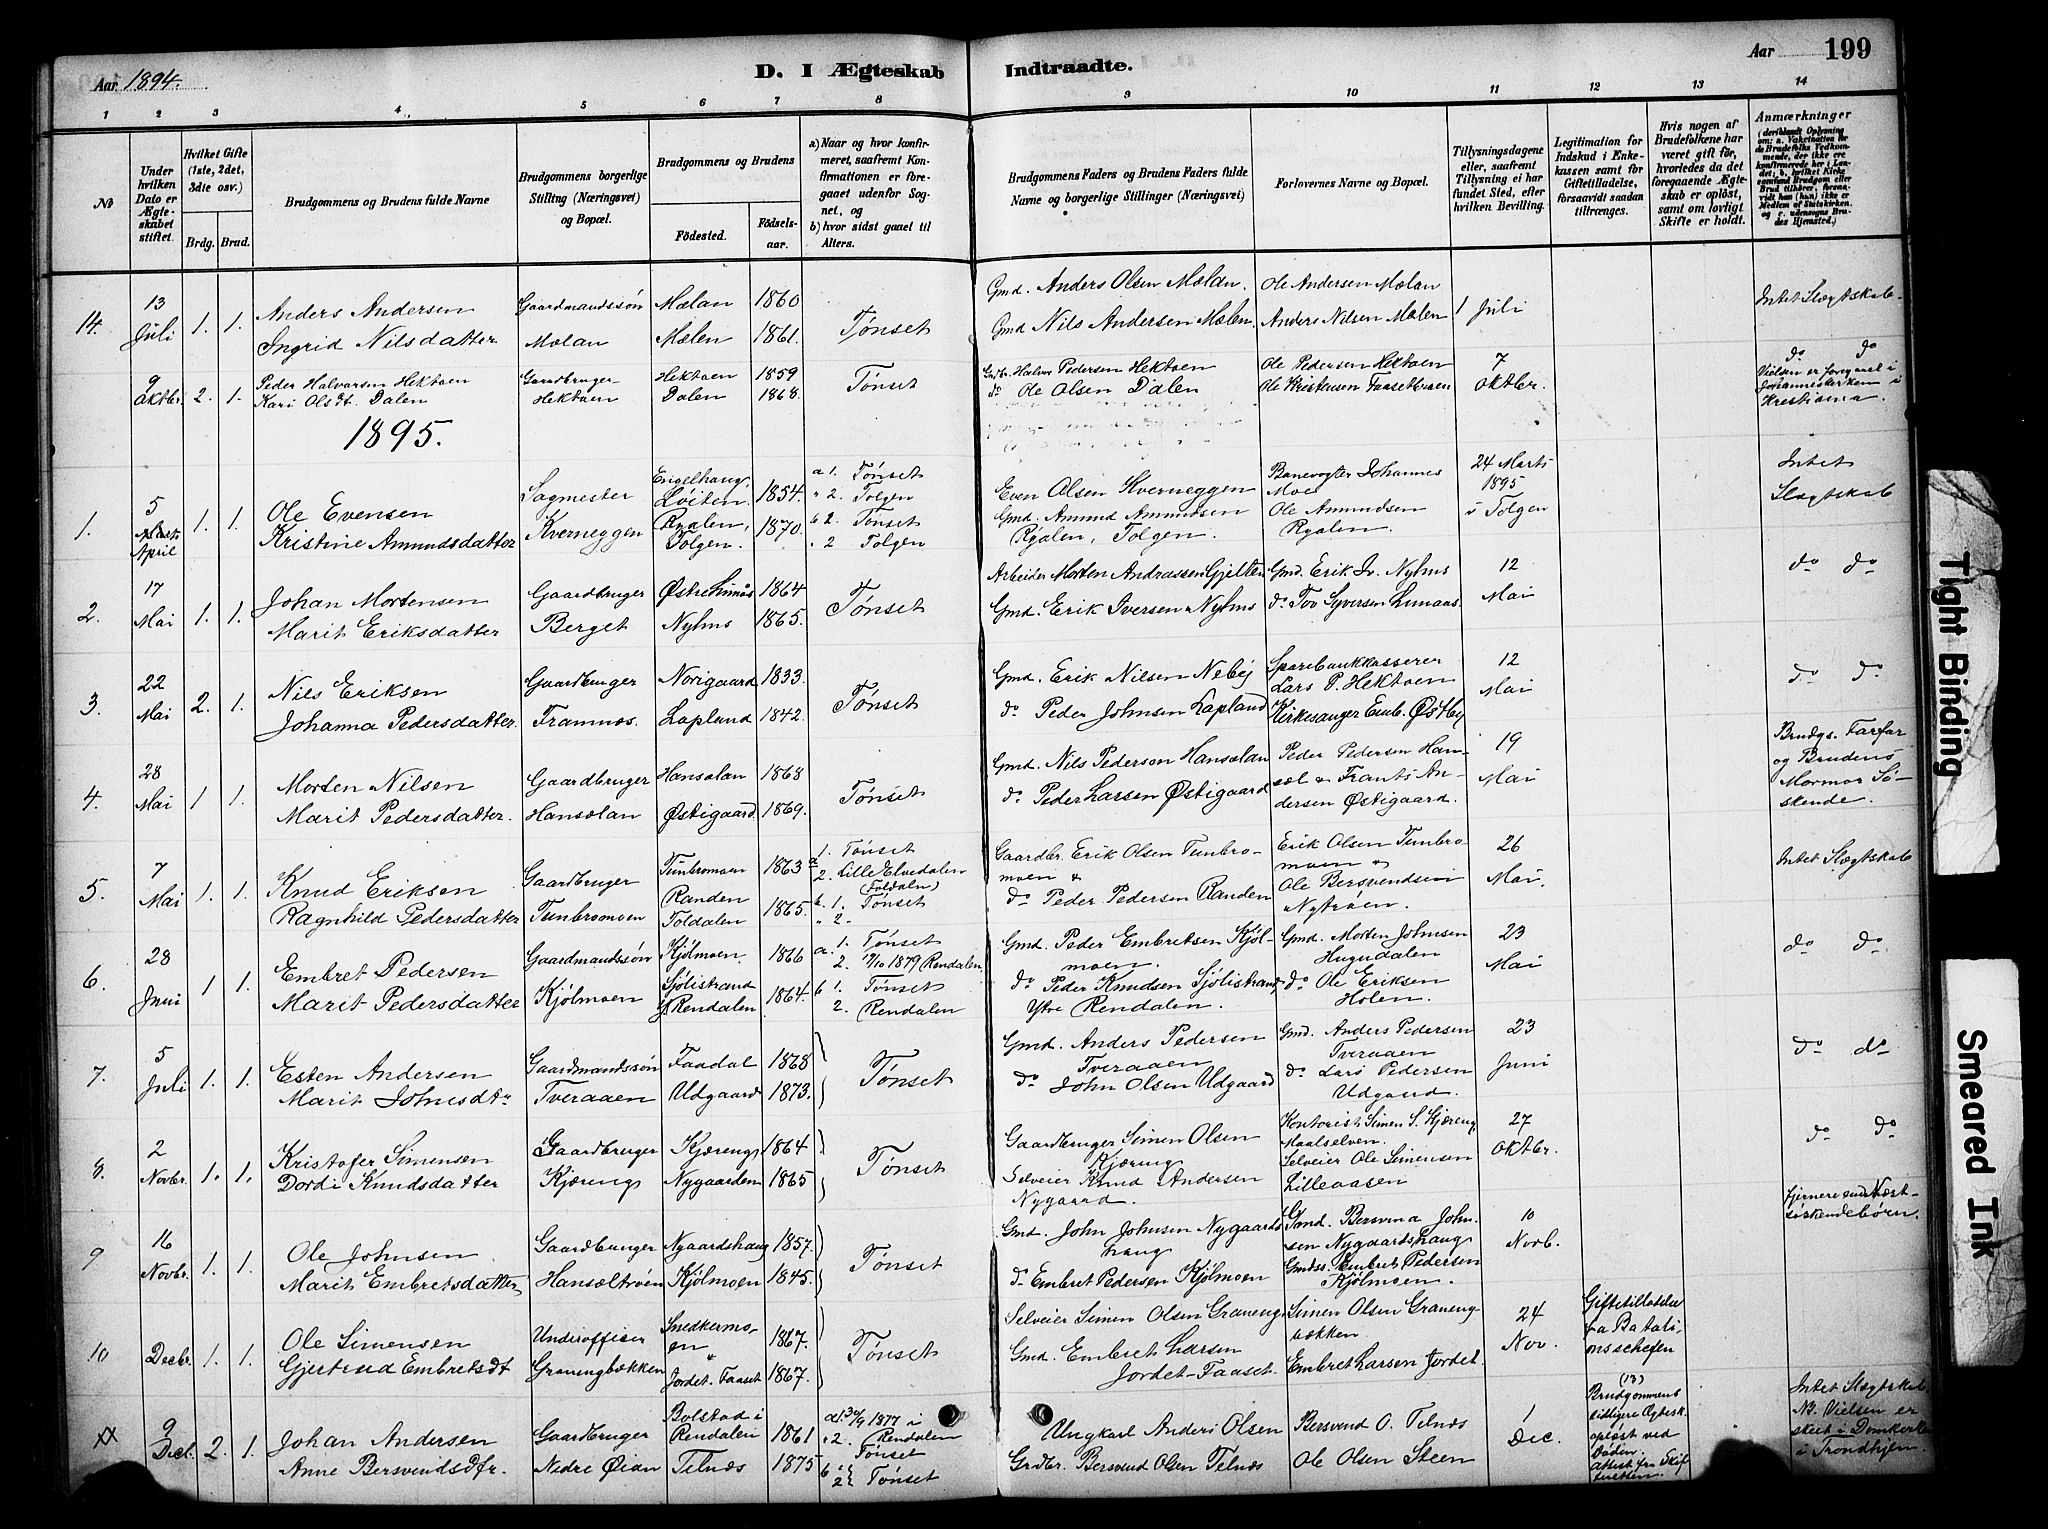 Aar 1894.
D. I Ægteskab Indtraadte.
Aar 199
1 2 3 4 5 6 7 8 9 10 11 12 13 14
No
Under hvilken Dato er Ægteskabet stiftet.
Hvilket Gifte (1ste, 2det, 3die osv.)
Brdg. Brud.
Brudgommens og Brudens fulde Navne
Brudgommens borgerlige Stilling (Næringsvei) og Bopæl.
Brudgommens og Brudens
Fødested. Fødselsaar.
a) Naar og hvor konfirmeret, saafremt Konfirmationen er foregaaet udenfor Sognet, og
b) hvor sidst gaaet til Alters.
Brudgommens Faders og Brudens Faders fulde Navne og borgerlige Stillinger (Næringsvei)
Forlovernes Navne og Bopæl.
Tillysningsdagene eller, saafremt Tillysning ei har fundet Sted, efter hvilken Bevilling.
Legitimation for Indskud i Enkekassen samt for Giftetilladelse, forsaavidt saadan tiltrænges.
Hvis nogen af Brudefolkene har været gift før, hvorledes da det foregaaende Ægteskab er opløst, samt om lovligt Skifte er holdt.
Anmærkninger
14. 13 Juli 1. 1. Anders Andersen Gaardmandssøn Mælan 1860 Tønset Gmd. Anders Olsen Mælan. Ole Andersen Mælan 1 Juli Intet Slægtskab
Ingrid Nilsdatter Mælan Mælen 1861. Gmd Nils Andersen Mælen, Anders Nilsen Mælen
9 Oktbr. 2. 1. Peder Halvorsen Hektoen Gaardbruger Hektoen 1859 Tønset Gmdbr. Halvor Pedersen Hektoen Ole Pedersen Hektoen 7 Oktbr. do do
Kari Olsdt. Dalen Hektoen Dalen 1868. do Ole Olsen Dalen Ole Kristensen Faasethusen Vielsen er foregaaet i Johanneskirken i Kristiania.
1895.
1. 5 April 1. 1. Ole Evensen Sagmester Engelhaug, Løiten 1854. a 1. Tønset " 2. Tolgen Even Olsen Kverneggen Banevogter Johannes Moe 24 Marts 1895 i Tolgen Intet Slægtskab
Kristine Amundsdatter Kverneggen Ryalen, Tolgen. 1870. b 2. Tønset " 2 Tolgen Gmd. Amund Amundsen Ryalen, Tolgen. Ole Amundsen Ryalen
2. 17 Mai 1. 1. Johan Mortensen Gaardbruger Østre Limås 1864 Tønset Arbeider Morten Andreassen Gjelten Gmd. Erik Iv. Nyhus 12 Mai do do
Marit Eriksdatter Berget Nyhus 1865. Gmd. Erik Iversen Nyhus do Tov Syversen Limaas.
3. 22 Mai 2. 1. Nils Eriksen Gaardbruger Norigaard 1833. Tønset Gmd. Erik Nilsen Nebÿ Sparebankkasserer Lars P. Hektoen 12 Mai do do
Johanna Pedersdatter. Framnes Lapland 1842. do Peder Johnsen Lapland Kirkesanger Emb. Østby
4. 28 Mai 1 1. Morten Nilsen Gaardbruger Hansælan 1868 Tønset Gmd. Nils Pedersen Hansælan Peder Pedersen Hansæl & Frants Andersen Østigaard. 19 Mai Brudgs. Farfar og Brudens Mormor Søskende.
Marit Pedersdatter. Hansælan Østigaard 1869. do Peder Larsen Østigaard
5. 7 Mai 1. 1. Knud Eriksen Gaardbruger Tunbromoen 1863 a 1. Tønset 2. Lille Elvedalen (Foldalen) Gaardbr. Erik Olsen Tunbromoen & Erik Olsen Tunbromoen & 26 Mai. Intet Slægtskab
Ragnhild Pedersdatter Tunbromoen Randen Foldalen 1865. b 1. Tønset " 2 do Peder Pedersen Randen Ole Bersvendsen Nytrøen.
6. 28 Juni 1 1. Embret Pedersen Gaardmandssøn Kjølmoen 1866 a. 1. Tønset 2. 1879 Rendalen. Gmd. Peder Embretsen Kjølmoen. Gmd. Morten Johnsen Hugudalen 23 Mai do do
Marit Pedersdatter Kjølmoen Sjølistrand Y. Rendalen 1864. b 1. Tønset 2. Rendalen do Peder Knudsen Sjølistrand Ytre Rendalen. do Ole Eriksen Holen.
7. 5 Juli 1. 1. Esten Andersen Gaardmandssøn Faadal 1868 Tønset Gmd. Anders Pedersen Tveraaen Gmd. Anders Pedersen Tveraaen 23 Juni do do
Marit Johnsdtr Tveraaen Udgaard 1873. do John Olsen Udgaard do Lars Pedersen Udgaard.
8. 2 Novbr. 1. 1. Kristofer Simensen Gaardbruger Kjæreng 1864 Tønset Gaardbruger Simen Olsen Kjæreng Kontorist Simen S. Kjæreng Maalselven. 27 Oktbr. do do
Dordi Knudsdatter Kjæreng Nygaarden 1865 Selveier Knud Andersen Nygaard. Selveier Ole Simensen Lilleaasen
9 16 Novbr. 1. 1. Ole Johnsen Gaardbruger Nygaardshaug 1857. Tønset Gmd. John Johnsen Nygaardshaug Gmd. Bersvend Johnsen Nygaardshaug 10 Novb. fjernere end Næstsøskendebørn.
Marit Embretsdatter Hansæltrøen Kjølmoen 1845. do Embret Pedersen Kjølmoen Gmdss. Embret Pedersen Kjølmoen.
10 Decbr. 1. 1. Ole Simensen Underofficer Snedkermoen 1867. Tønset Selveier Simen Olsen Graneng Simen Olsen Granengbækken 24 Nov. Giftetilladelse fra Bataljonschefen
Gjertrud Embretsdt Graningbækken Jordet. Faaset 1867. Gmd. Embret Larsen Jordet-Faaset. Embret Larsen Jordet.
9 Decb. 2. 1. Johan Andersen Gaardbruger Bolstad i Rendalen 1861 a 1. 30/9 1877 i " 2. Rendalen Tønset Ungkarl Anders Olsen Bersvend O. Telnæs 1 Dec. (13) Brudgommens tidligere Egtesk. opløst ved Døden. Attest fra Skifteretten. Intet Slægtskab NB. Vielsen er skeet i Domkirken i Trondhjem.
Anne Bersvendsdtr. Nedre Øian Telnæs 1875 b 2 Tønset Grdbr. Bersvend Olsen Telnæs Ole Olsen Steen
Tight Binding
Smeared Ink